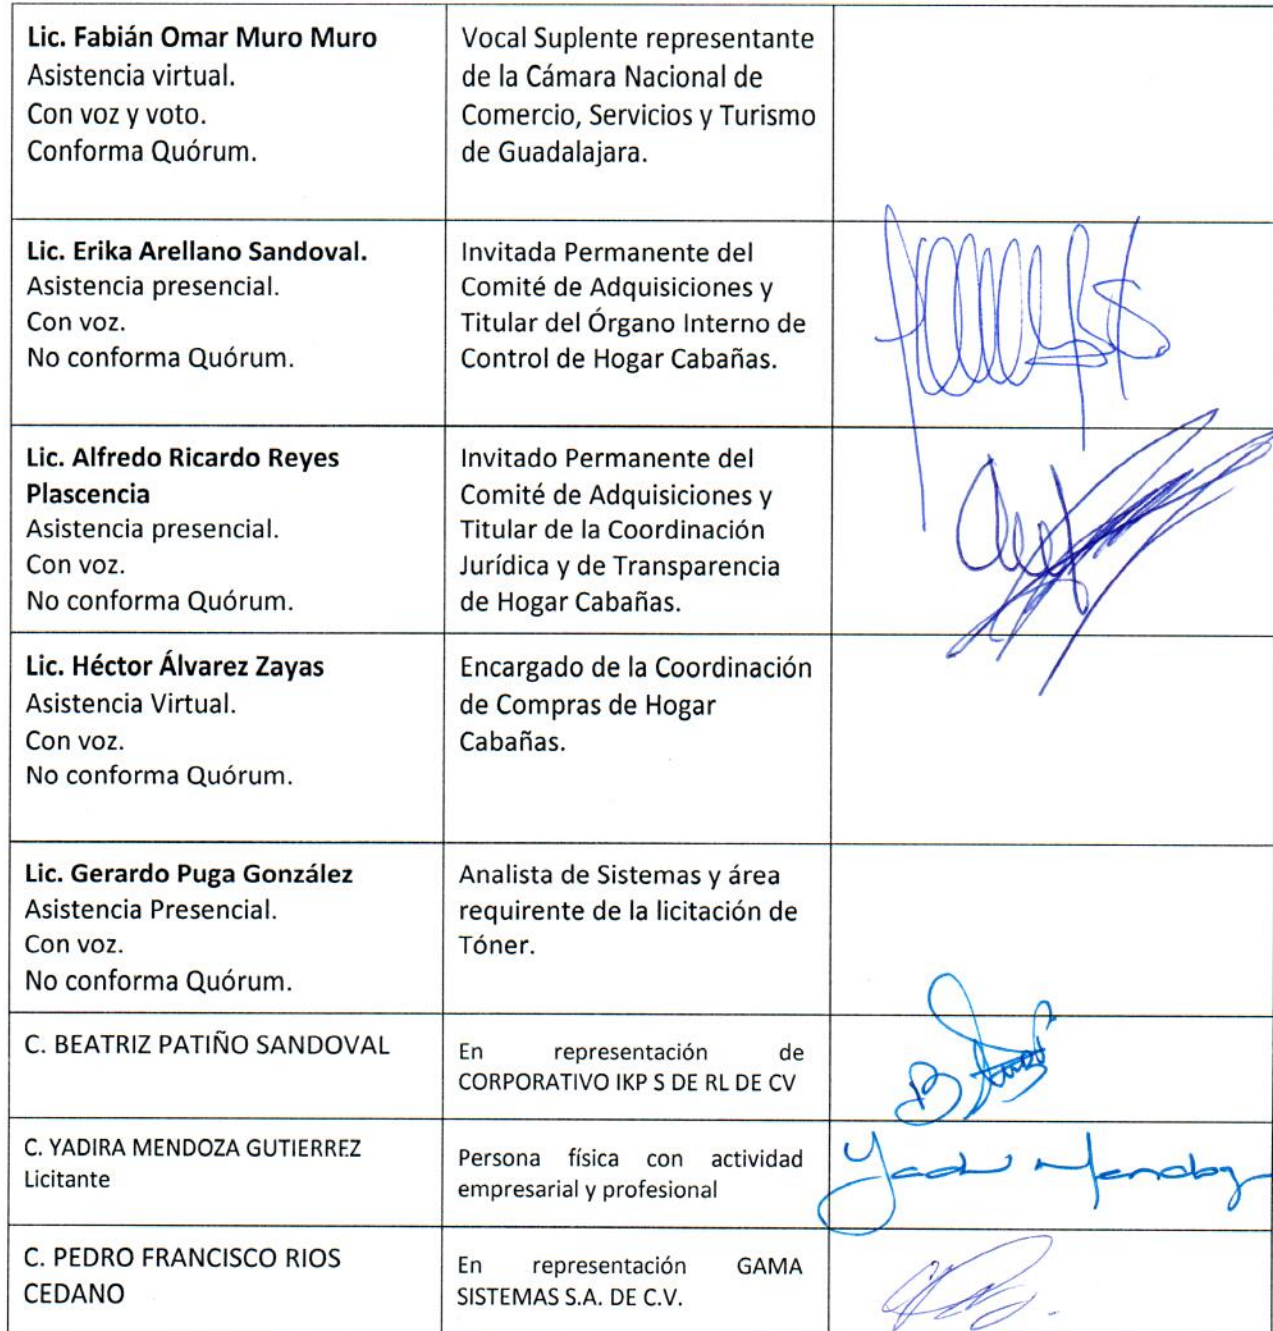 Lic. Fabián Omar Muro Muro
Asistencia virtual.
Con voz y voto.
Conforma Quórum.
Vocal Suplente representante
de la Cámara Nacional de
Comercio, Servicios y Turismo
de Guadalajara.
Lic. Erika Arellano Sandoval.
Asistencia presencial.
Con voz.
No conforma Quórum.
Invitada Permanente del
Comité de Adquisiciones y
Titular del Órgano Interno de
Control de Hogar Cabañas.
Lic. Alfredo Ricardo Reyes
Plascencia
Asistencia presencial.
Con voz.
No conforma Quórum.
Invitado Permanente del
Comité de Adquisiciones y
Titular de la Coordinación
Jurídica y de Transparencia
de Hogar Cabañas.
Lic. Héctor Álvarez Zayas
Asistencia Virtual.
Con voz.
No conforma Quórum.
Encargado de la Coordinación
de Compras de Hogar
Cabañas.
Lic. Gerardo Puga González
Asistencia Presencial.
Con voz.
No conforma Quórum.
Analista de Sistemas y área
requirente de la licitación de
Tóner.
C. BEATRIZ PATIÑO SANDOVAL
En representación de
CORPORATIVO IKP S DE RL DE CV
C. YADIRA MENDOZA GUTIERREZ
Licitante
Persona física con actividad
empresarial y profesional
C. PEDRO FRANCISCO RIOS
CEDANO
En representación GAMA
SISTEMAS S.A. DE C.V.